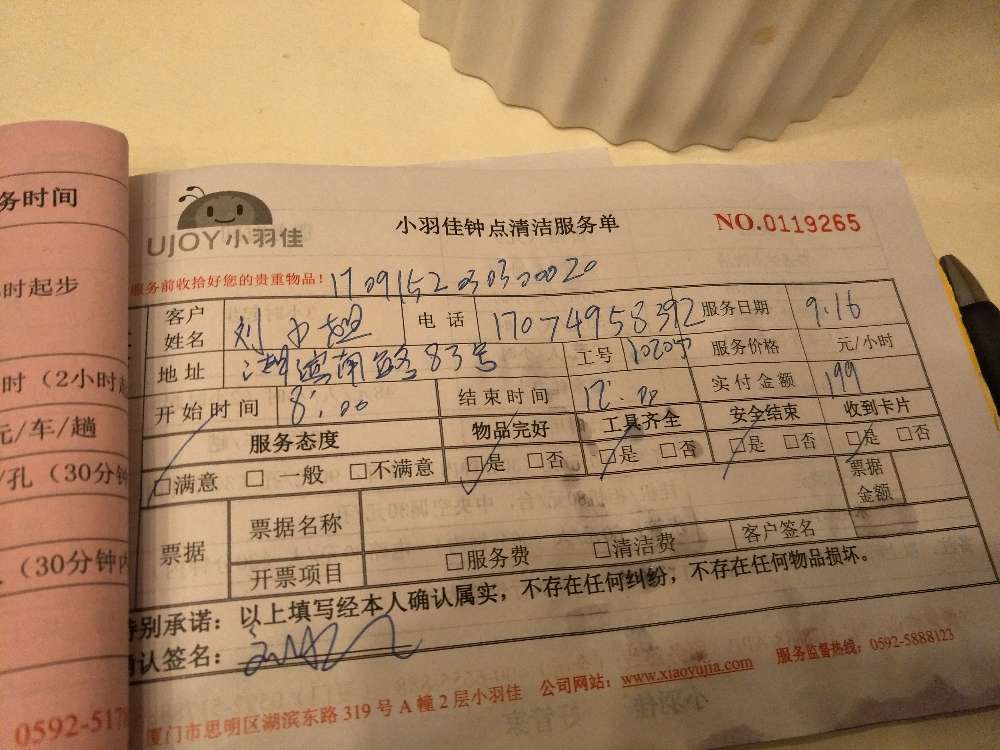 务时间
时起步
时（2小时起
元/车/趟
/孔（30分钟
（30分钟内
0592-517
UJOY小羽佳
小羽佳钟点清洁服务单
NO.0119265
服务前收拾好您的贵重物品！
170915203030020
客户姓名 刘小姐 电话 17074958392 服务日期 9.16
地址 湖滨南路83号 工号 服务价格 元/小时
开始时间 8:00 结束时间 12:00 实付金额 199
服务态度 物品完好 工具齐全 安全结束 收到卡片
□满意 □一般 □不满意 □是 □否 □是 □否 □是 □否 □是 □否
票据 票据名称 票据金额
开票项目 □服务费 □清洁费 客户签名
特别承诺：以上填写经本人确认属实，不存在任何纠纷，不存在任何物品损坏。
确认签名：
厦门市思明区湖滨东路 319 号 A 幢 2 层小羽佳 公司网站：www.xiaoyujia.com 服务监督热线：0592-5888123